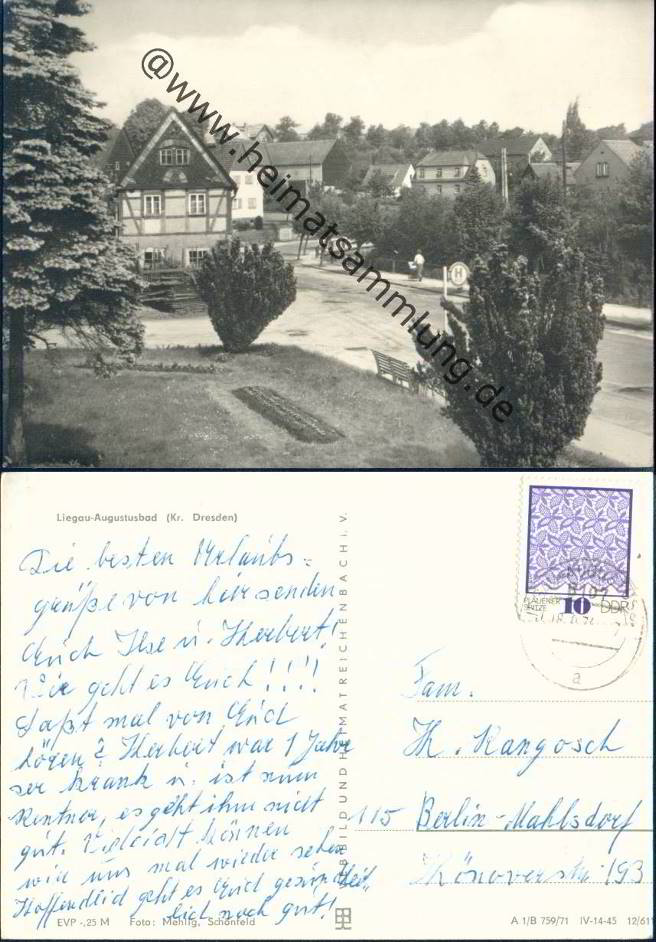 @www.heimatsammlung.de
H
Liegau-Augustusbad (Kr. Dresden)
Die besten Urlaubs=
grüße von hir senden
Euch Ilse u. Herbert!
Wie geht es Euch !!!!
Laßt mal von Euch
hören? Herbert war 1 Jahr
ser krank u. ist nun
Rentner, es geht ihm nicht
gut. Vieleicht können
wir uns mal wieder sehen
Hoffendlid geht es Euch gesundheit=
lich noch gut!
EVP -,25 M Foto: Mehlig, Schönfeld
BILD UND HEIMAT REICHENBACH I. V.
PLAUENER
SPITZE
10 DDR
8107
a
Fam.
H. Kangosch
115 Berlin-Mahlsdorf
193
A 1/B 759/71 IV-14-45 12/611